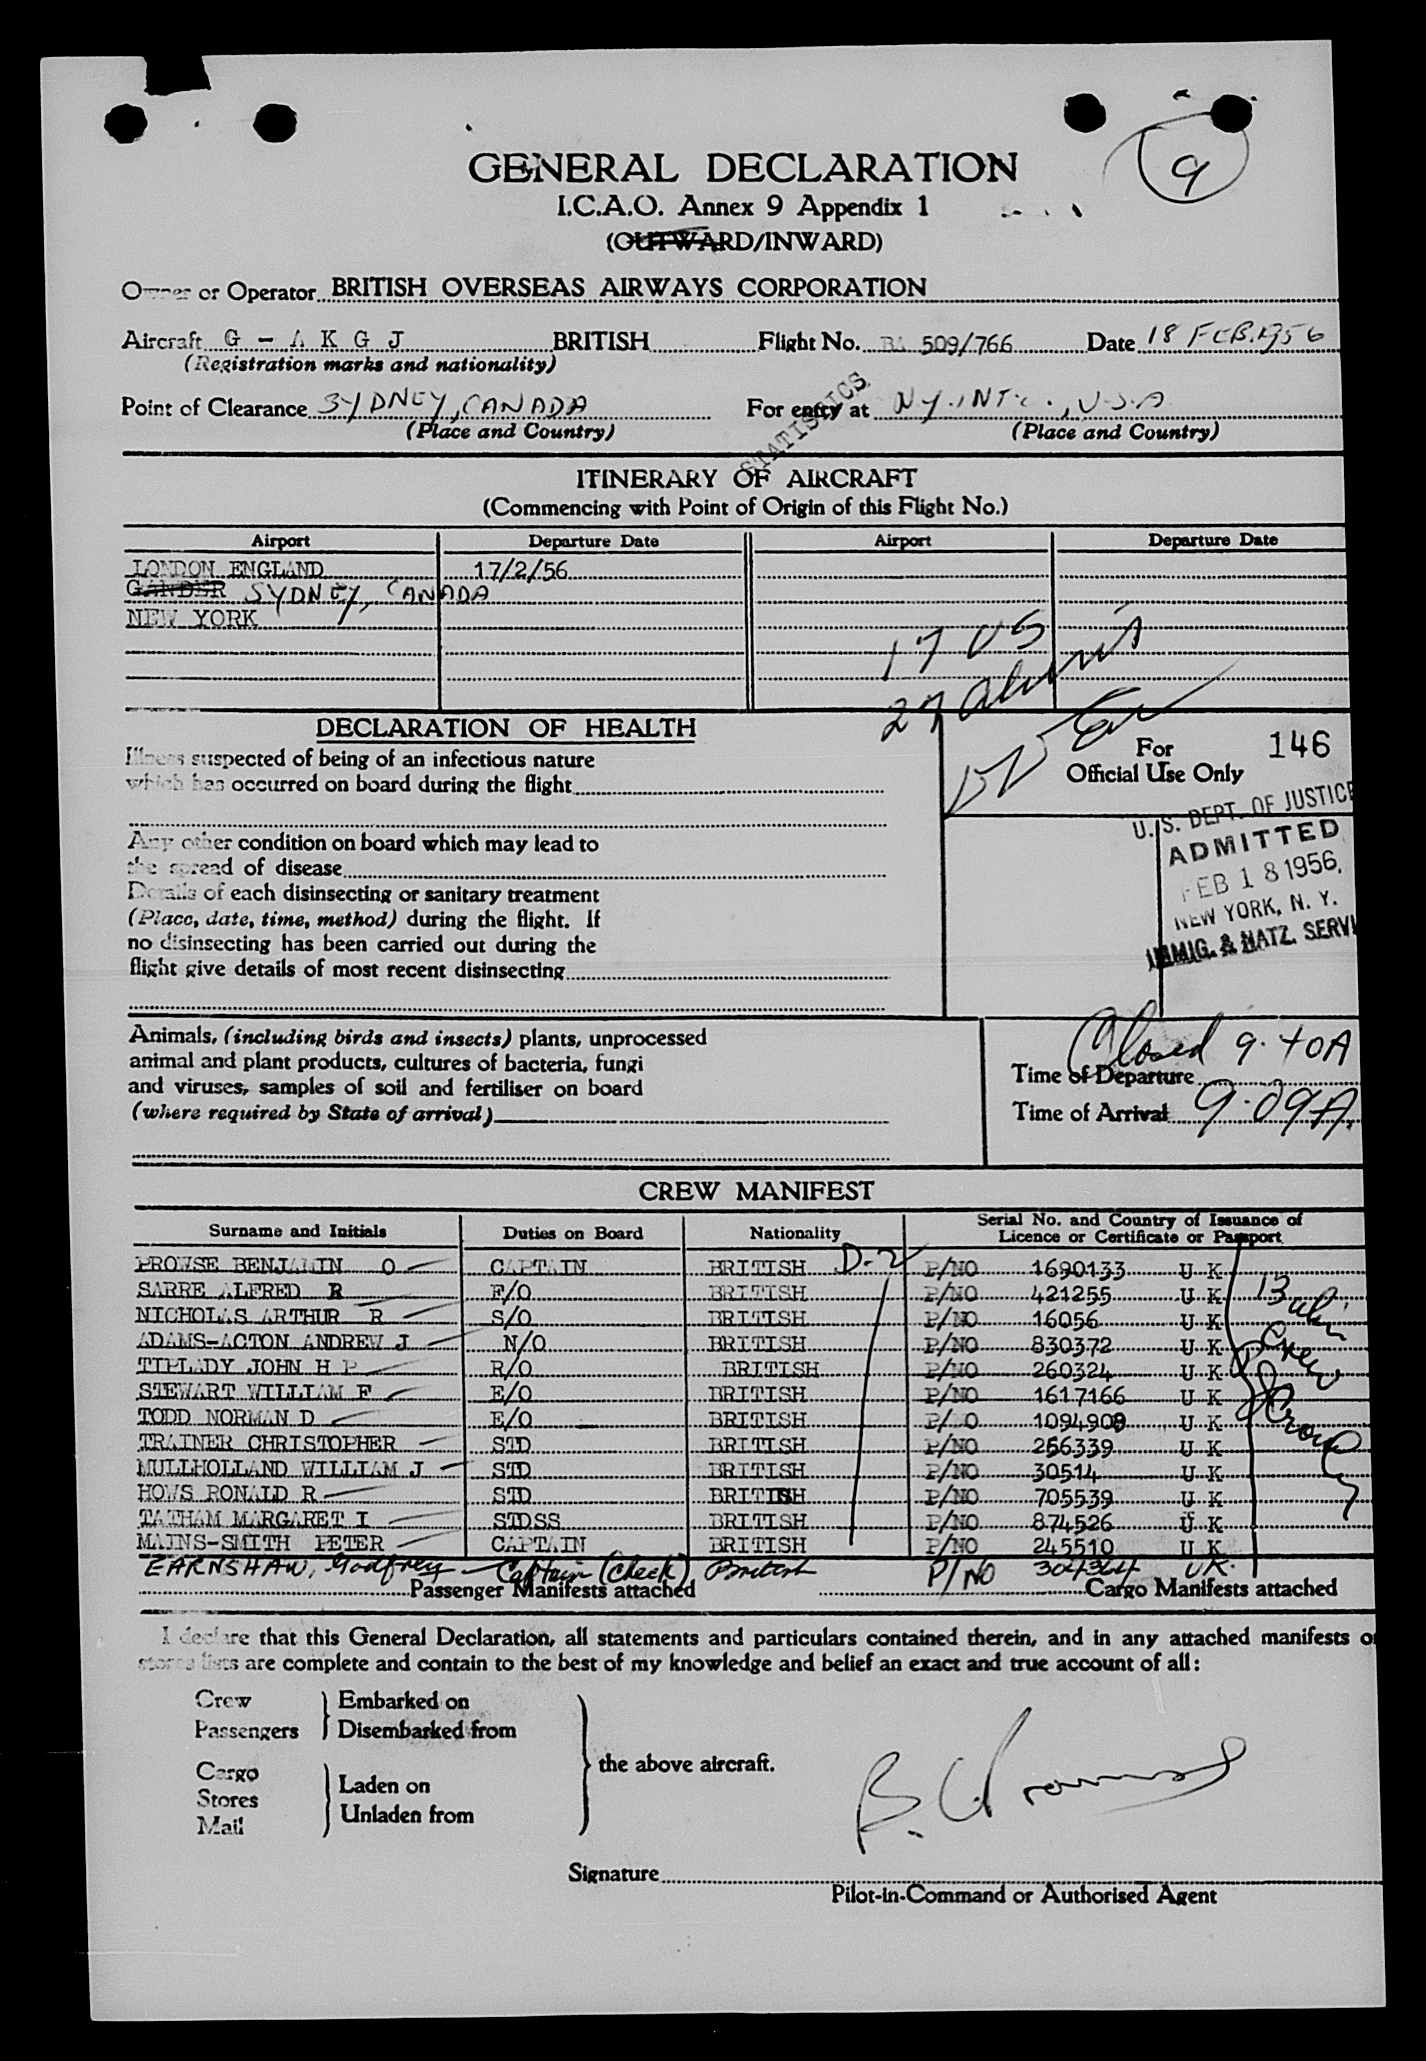 9
GENERAL DECLARATION
I.C.A.O. Annex 9 Appendix 1
(OUTWARD/INWARD)
Owner or Operator BRITISH OVERSEAS AIRWAYS CORPORATION
Aircraft G - A K G J BRITISH Flight No. BA 509/766 Date 18 FEB. 1956
(Registration marks and nationality)
Point of Clearance SYDNEY, CANADA For entry at N.Y. INT'L., U.S.A.
(Place and Country) (Place and Country)
STATISTICS
ITINERARY OF AIRCRAFT
(Commencing with Point of Origin of this Flight No.)
Airport Departure Date Airport Departure Date
LONDON ENGLAND 17/2/56
GANDER SYDNEY, CANADA
NEW YORK
17 US
27 aliens
DECLARATION OF HEALTH
Illness suspected of being of an infectious nature
which has occurred on board during the flight
For 146
Official Use Only
U. S. DEPT. OF JUSTICE
ADMITTED
FEB 18 1956
NEW YORK, N. Y.
IMMIG. & NATZ. SERVI
Any other condition on board which may lead to
the spread of disease
Details of each disinsecting or sanitary treatment
(Place, date, time, method) during the flight. If
no disinsecting has been carried out during the
flight give details of most recent disinsecting
Animals, (including birds and insects) plants, unprocessed
animal and plant products, cultures of bacteria, fungi
and viruses, samples of soil and fertiliser on board
(where required by State of arrival)
Closed 9.40A
Time of Departure
Time of Arrival 9.09A.
CREW MANIFEST
Surname and Initials Duties on Board Nationality Serial No. and Country of Issuance of Licence or Certificate or Passport
PROWSE BENJAMIN O CAPTAIN BRITISH D-2 P/NO 1690133 U K
SARRE ALFRED R F/O BRITISH P/NO 421255 U K
NICHOLAS ARTHUR R S/O BRITISH P/NO 16056 U K
ADAMS-ACTON ANDREW J N/O BRITISH P/NO 830372 U K
TIPLADY JOHN H P R/O BRITISH P/NO 260324 U K
STEWART WILLIAM F E/O BRITISH P/NO 1617166 U K
TODD NORMAN D E/O BRITISH P/NO 1094908 U K
TRAINER CHRISTOPHER STD BRITISH P/NO 256339 U K
MULLHOLLAND WILLIAM J STD BRITISH P/NO 30514 U K
HOWS RONALD R STD BRITISH P/NO 705539 U K
TATHAM MARGARET I STDSS BRITISH P/NO 874526 U K
MAINS-SMITH PETER CAPTAIN BRITISH P/NO 245510 U K
EARNSHAW, Godfrey Captain (Check) British P/NO 304364 UK.
13 alien
Crew
Passenger Manifests attached Cargo Manifests attached
I declare that this General Declaration, all statements and particulars contained therein, and in any attached manifests or
stores lists are complete and contain to the best of my knowledge and belief an exact and true account of all:
Crew
Passengers
Embarked on
Disembarked from
Cargo
Stores
Mail
Laden on
Unladen from
the above aircraft.
B. O. Prowse
Signature
Pilot-in-Command or Authorised Agent